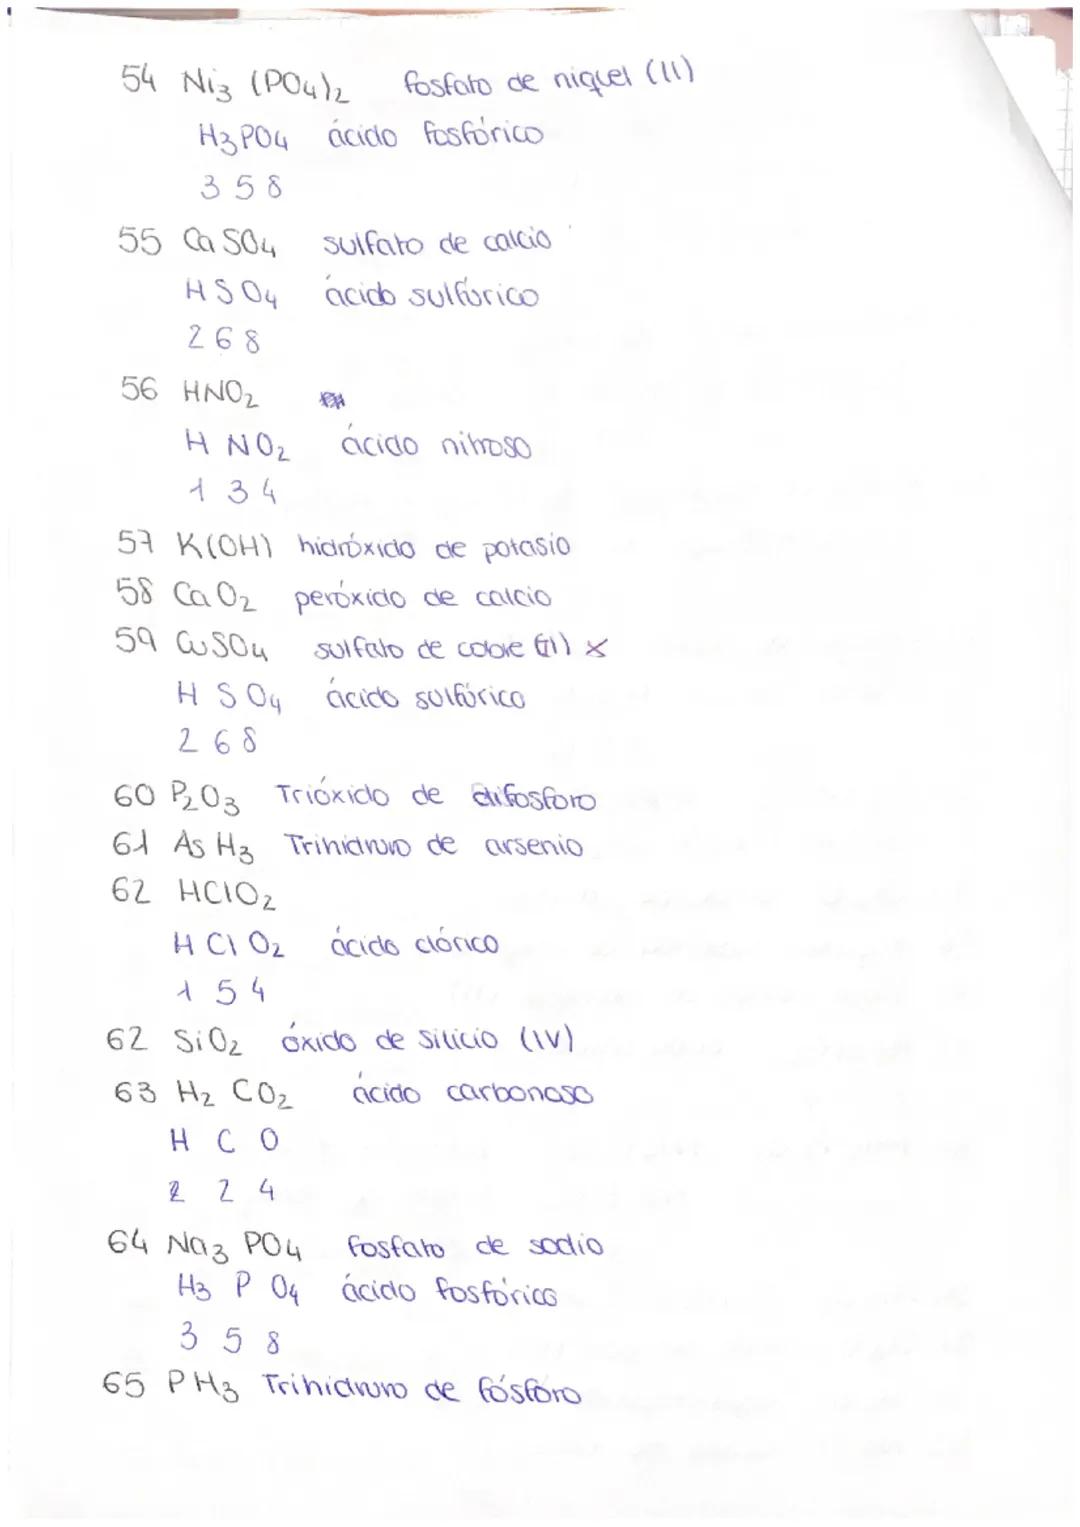 54 Ni3 (PO4)2 fosfato de níquel (II)
H3PO4 ácido fosfórico
3 5 8
55 CaSO4 sulfato de calcio
HSO4 ácido sulfúrico
2 6 8
56 HNO2
H NO2 ácido nitroso
1 3 4
57 K(OH) hidróxido de potasio
58 CaO2 peróxido de calcio
59 CuSO4 sulfato de cobre (II) x
H SO4 ácido sulfúrico
2 6 8
60 P2O3 Trióxido de difosforo
61 AsH3 Trihidruro de arsenio
62 HClO2
H Cl O2 ácido clórico
1 5 4
62 SiO2 óxido de silicio (IV)
63 H2 CO2 ácido carbonoso
H C O
2 2 4
64 Na3 PO4 fosfato de sodio
H3 P O4 ácido fosfórico
3 5 8
65 PH3 Trihidruro de fósforo